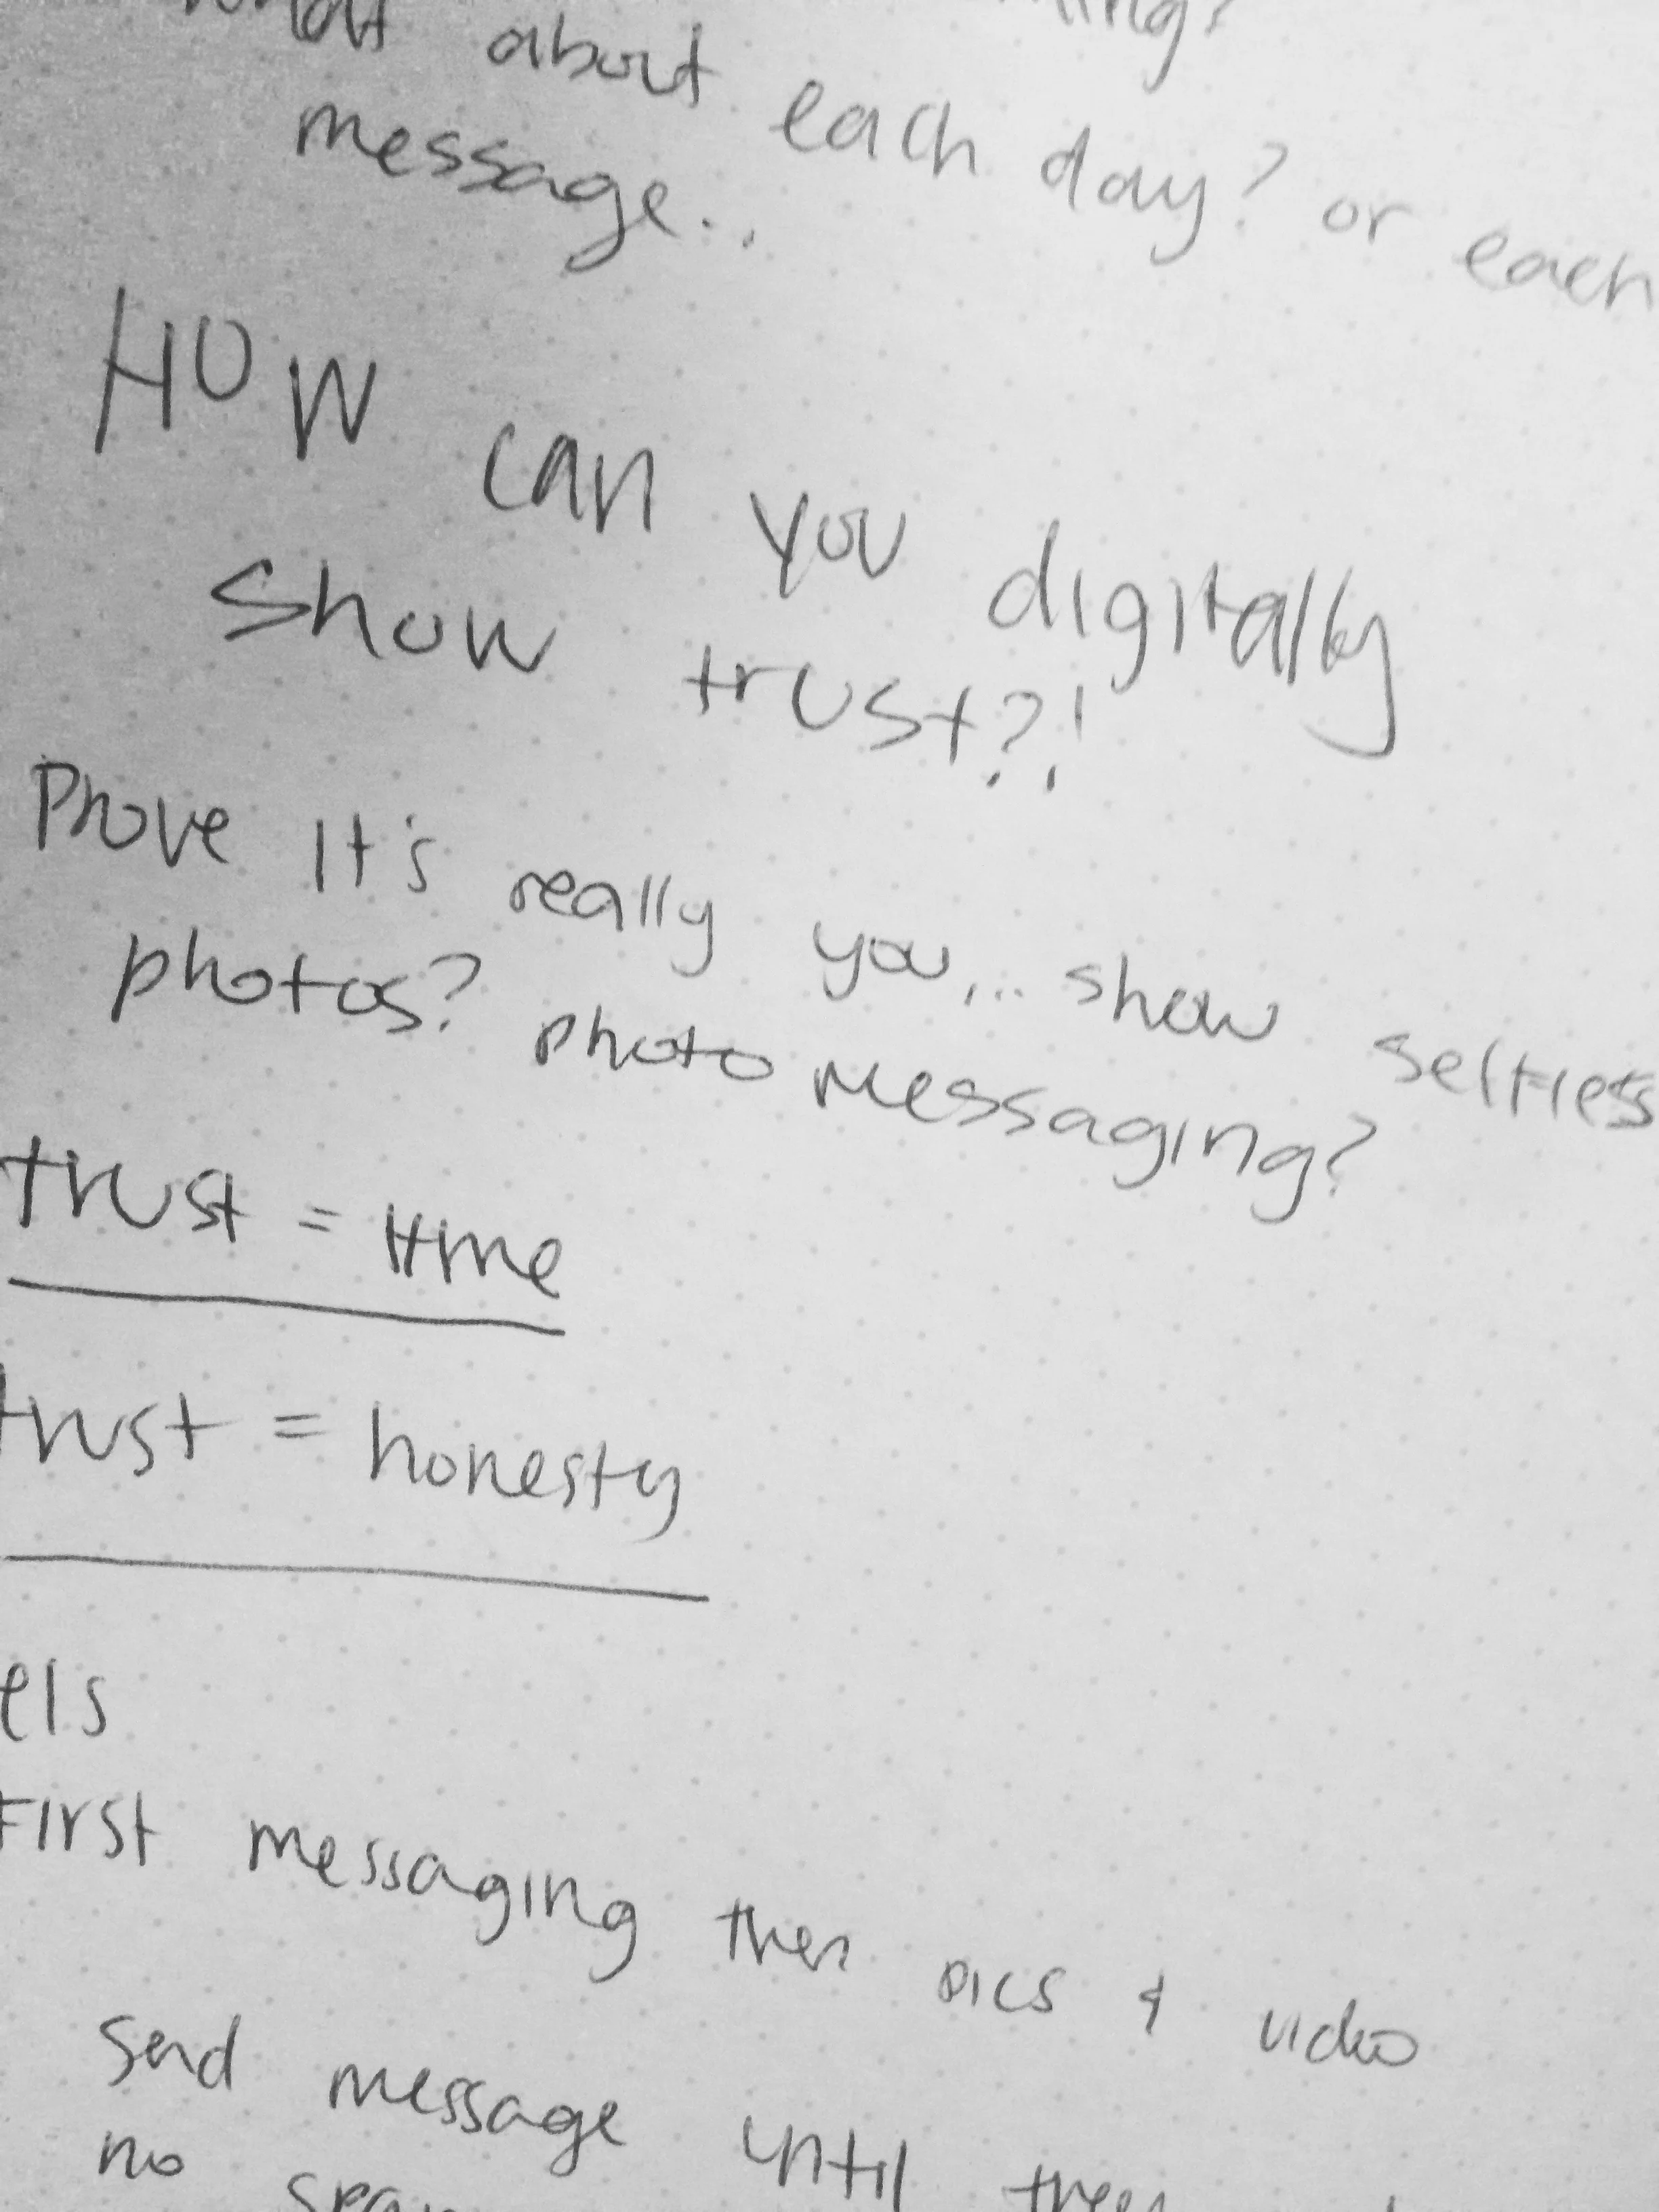 about each day? or each
message...
HOW can you digitally
show trust?!
Prove it's really you... show selfies
photos? photo messaging?
trust = time
trust = honesty
els
First messaging then pics & video
Send message until
no